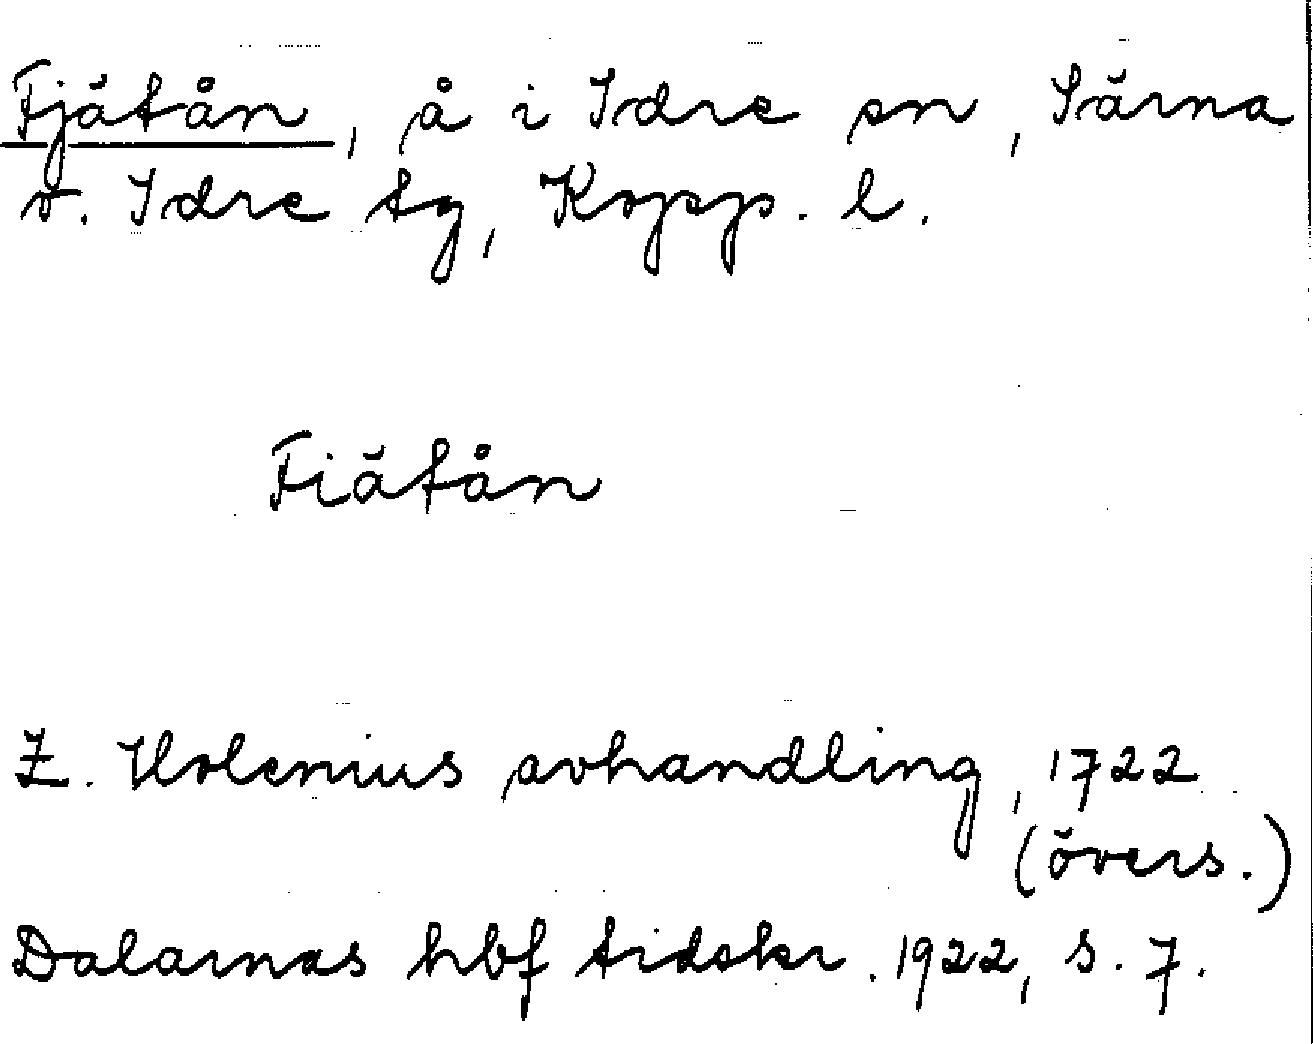 Fjätån, å i Idre sn, Särna
o. Idre tg, Kopp. l.
Fiätån
Z. Holenius avhandling, 1722
(övers.)
Dalarnas hbf tidskr. 1922, s. 7.